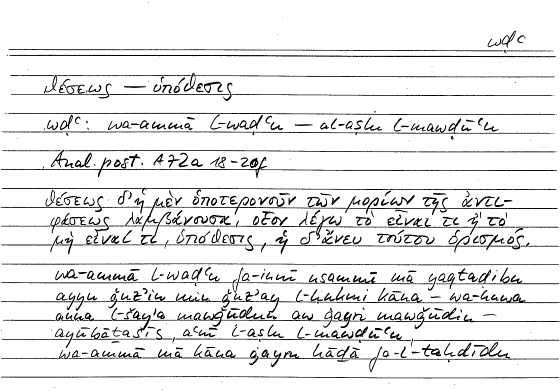 wḍʿ
θέσεως — ὑπόθεσις
wḍʿ: wa-ammā l-waḍʿu — al-aṣlu l-mawḍūʿu
Anal. post. A 72a 18-20f
θέσεως δ' ἡ μὲν ὁποτερονοῦν τῶν μορίων τῆς ἀντι-
φάσεως λαμβάνουσα, οἷον λέγω τὸ εἶναί τι ἢ τὸ
μὴ εἶναί τι, ὑπόθεσις, ἡ δ' ἄνευ τούτου ὁρισμός.
wa-ammā l-waḍʿu fa-inna mā yaqtaḍibu
ayyu ǧuz'in min ǧuz'ay l-ḥukmi kāna – wa-huwa
anna l-šay'a mawǧūdun aw ġayri mawǧūdin –
aʿnī l-aṣlu l-mawḍūʿu,
wa-ammā mā kāna ġayru hāḏā fa-l-taḥdīdu